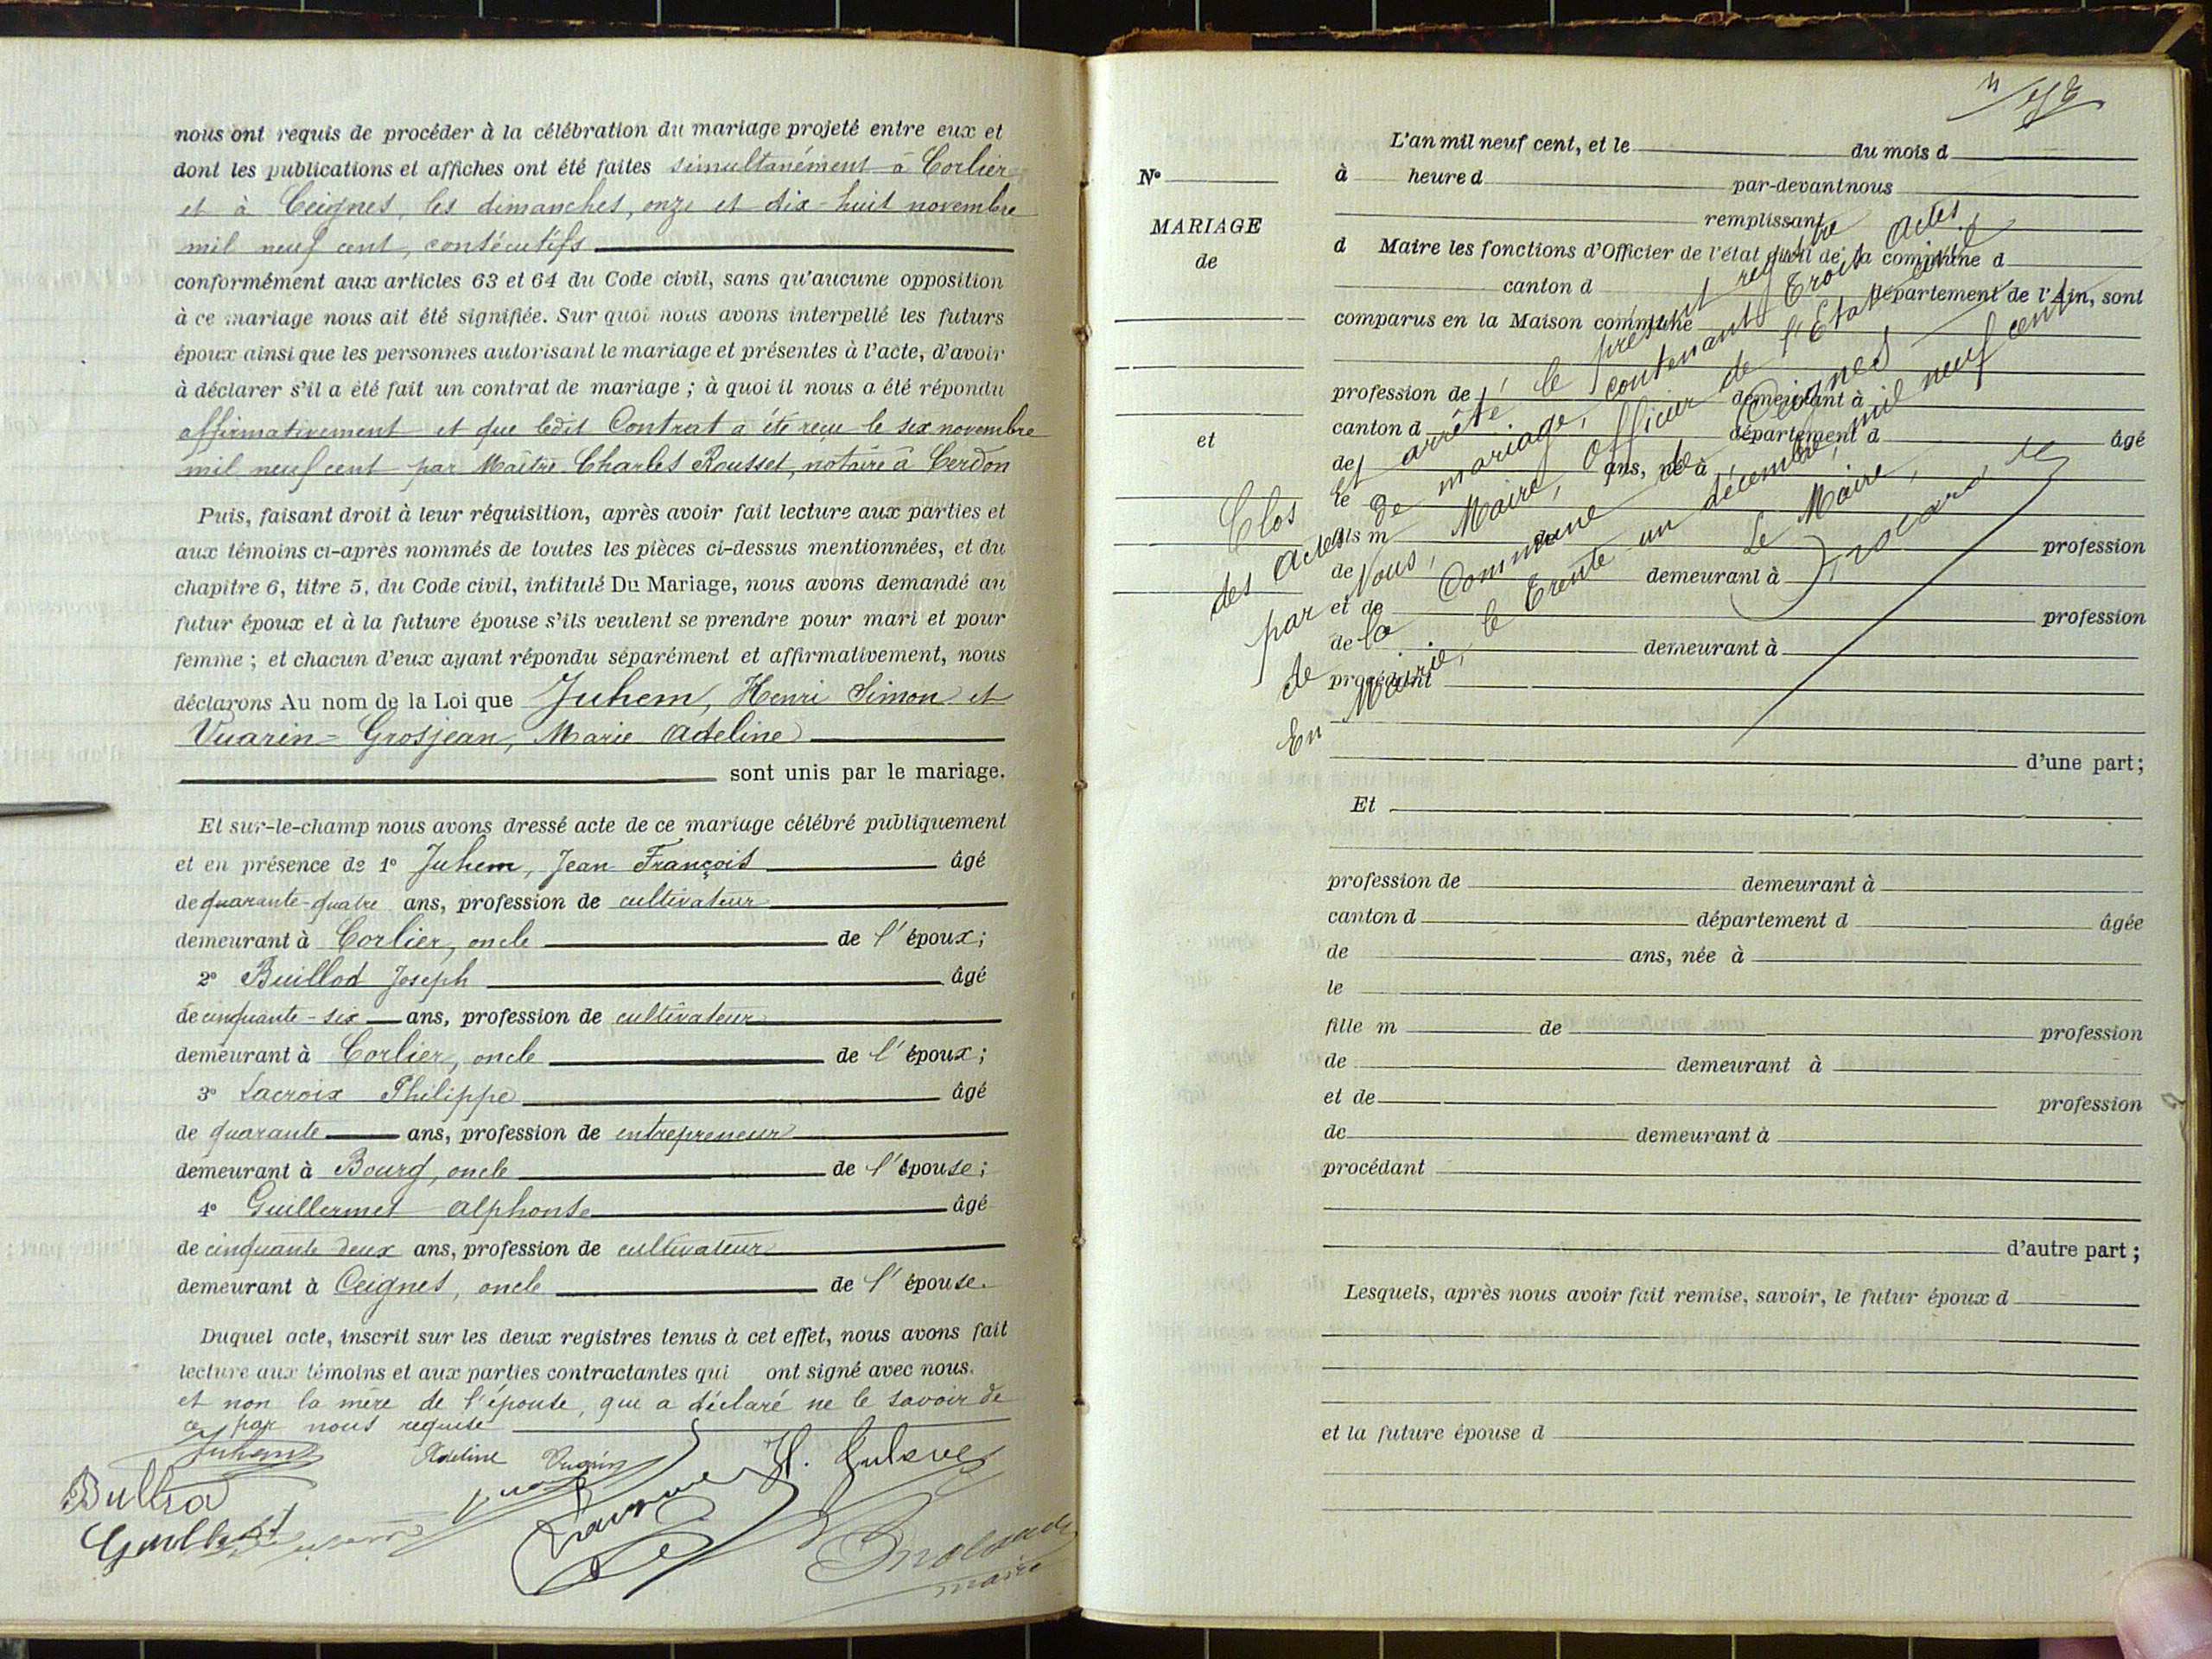 nous ont requis de procéder à la célébration du mariage projeté entre eux et
dont les publications et affiches ont été faites simultanément à Corlier
et à Ceignes, les dimanches, onze et dix-huit novembre
mil neuf cent, consécutifs
conformément aux articles 63 et 64 du Code civil, sans qu'aucune opposition
à ce mariage nous ait été signifiée. Sur quoi nous avons interpellé les futurs
époux ainsi que les personnes autorisant le mariage et présentes à l'acte, d'avoir
à déclarer s'il a été fait un contrat de mariage ; à quoi il nous a été répondu
affirmativement et que ledit Contrat a été reçu le six novembre
mil neuf cent par Maître Charles Rousset, notaire à Cerdon
Puis, faisant droit à leur réquisition, après avoir fait lecture aux parties et
aux témoins ci-après nommés de toutes les pièces ci-dessus mentionnées, et du
chapitre 6, titre 5, du Code civil, intitulé Du Mariage, nous avons demandé au
futur époux et à la future épouse s'ils veulent se prendre pour mari et pour
femme ; et chacun d'eux ayant répondu séparément et affirmativement, nous
déclarons Au nom de la Loi que Juhem, Henri Simon et
Vuarin-Grosjean, Marie Adeline
sont unis par le mariage.
Et sur-le-champ nous avons dressé acte de ce mariage célébré publiquement
et en présence de 1° Juhem, Jean François âgé
de quarante-quatre ans, profession de cultivateur
demeurant à Corlier, oncle de l'époux ;
2° Buillod Joseph âgé
de cinquante-six ans, profession de cultivateur
demeurant à Corlier, oncle de l'époux ;
3° Lacroix Philippe âgé
de quarante ans, profession de entrepreneur
demeurant à Bourg, oncle de l'épouse ;
4° Guillermet Alphonse âgé
de cinquante deux ans, profession de cultivateur
demeurant à Ceignes, oncle de l'épouse.
Duquel acte, inscrit sur les deux registres tenus à cet effet, nous avons fait
lecture aux témoins et aux parties contractantes qui ont signé avec nous.
et non la mère de l'épouse, qui a déclaré ne le savoir de
ce par nous requise
Juhem Adeline Vuarin
maire
L'an mil neuf cent, et le du mois d
N° à heure d par-devant nous
remplissant
MARIAGE
d Maire les fonctions d'Officier de l'état civil de la commune d
de
canton d département de l'Ain, sont
comparus en la Maison commune
profession de demeurant à
canton d département d âgé
et
de ans, né à
le
fils m de profession
de demeurant à
et de profession
de demeurant à
procédant
d'une part ;
Clos et arrêté le présent registre
des actes de mariage, contenant trois actes,
par Nous, Maire, Officier de l'Etat civil
de la Commune de Ceignes
En Mairie, le trente un décembre, mil neuf cent
Le Maire,
Et
profession de demeurant à
canton d département d âgée
de ans, née à
le
fille m de profession
de demeurant à
et de profession
de demeurant à
procédant
d'autre part ;
Lesquels, après nous avoir fait remise, savoir, le futur époux d
et la future épouse d